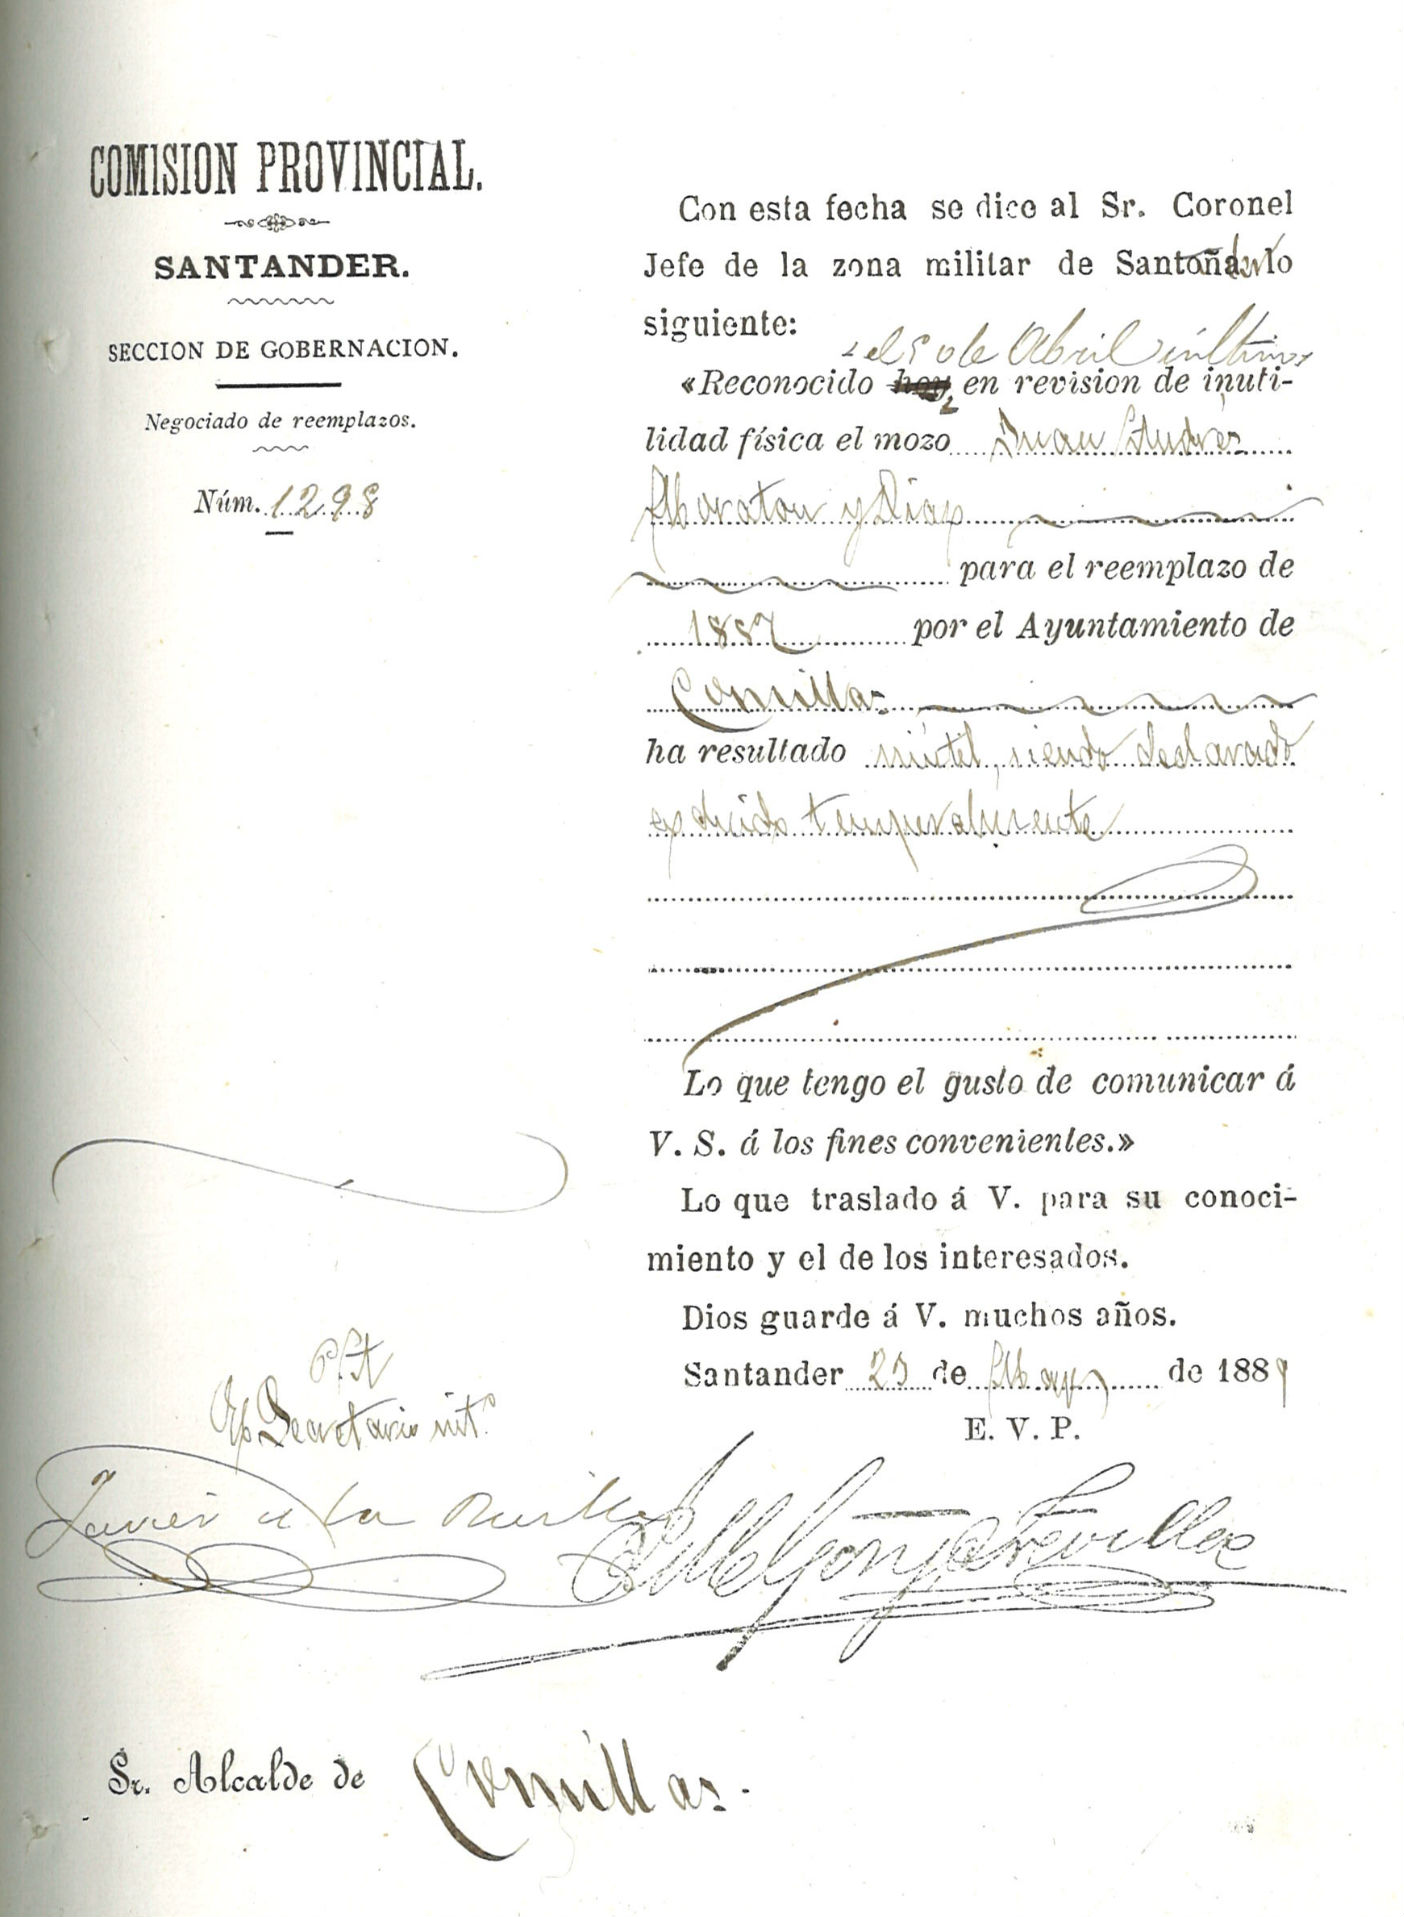 COMISION PROVINCIAL.
SANTANDER.
SECCION DE GOBERNACION.
Negociado de reemplazos.
Núm. 1298
Con esta fecha se dice al Sr. Coronel
Jefe de la zona militar de Santander lo
siguiente:
el 5 de Abril último
«Reconocido hoy en revision de inuti-
lidad física el mozo Juan Andrés
Maraton y Diaz
para el reemplazo de
1887 por el Ayuntamiento de
Comillas
ha resultado inútil, siendo declarado
excluido temporalmente
Lo que tengo el gusto de comunicar á
V. S. á los fines convenientes.»
Lo que traslado á V. para su conoci-
miento y el de los interesados.
Dios guarde á V. muchos años.
Santander 23 de Mayo de 1889
E. V. P.
P. A.
El Secretario intº
Javier de la
Sr. Alcalde de Comillas.